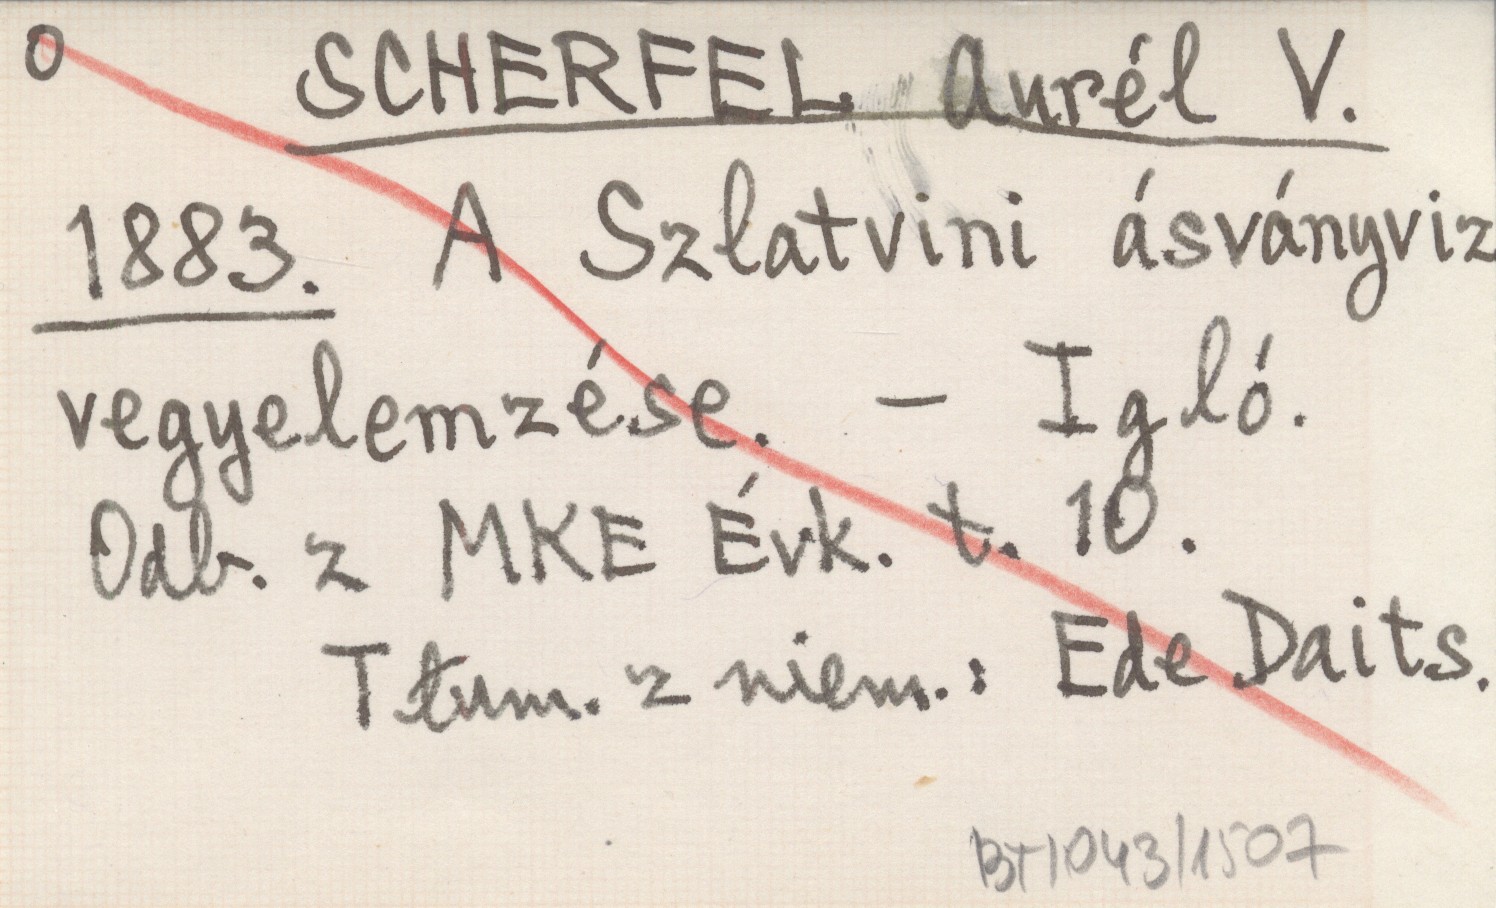 O
SCHERFEL Aurél V.
1883. A Szlatvini ásványviz
vegyelemzése. – Igló.
Odb. z MKE Évk. t. 10.
Tłum. z niem.: Ede Daits.
BT/043/1507